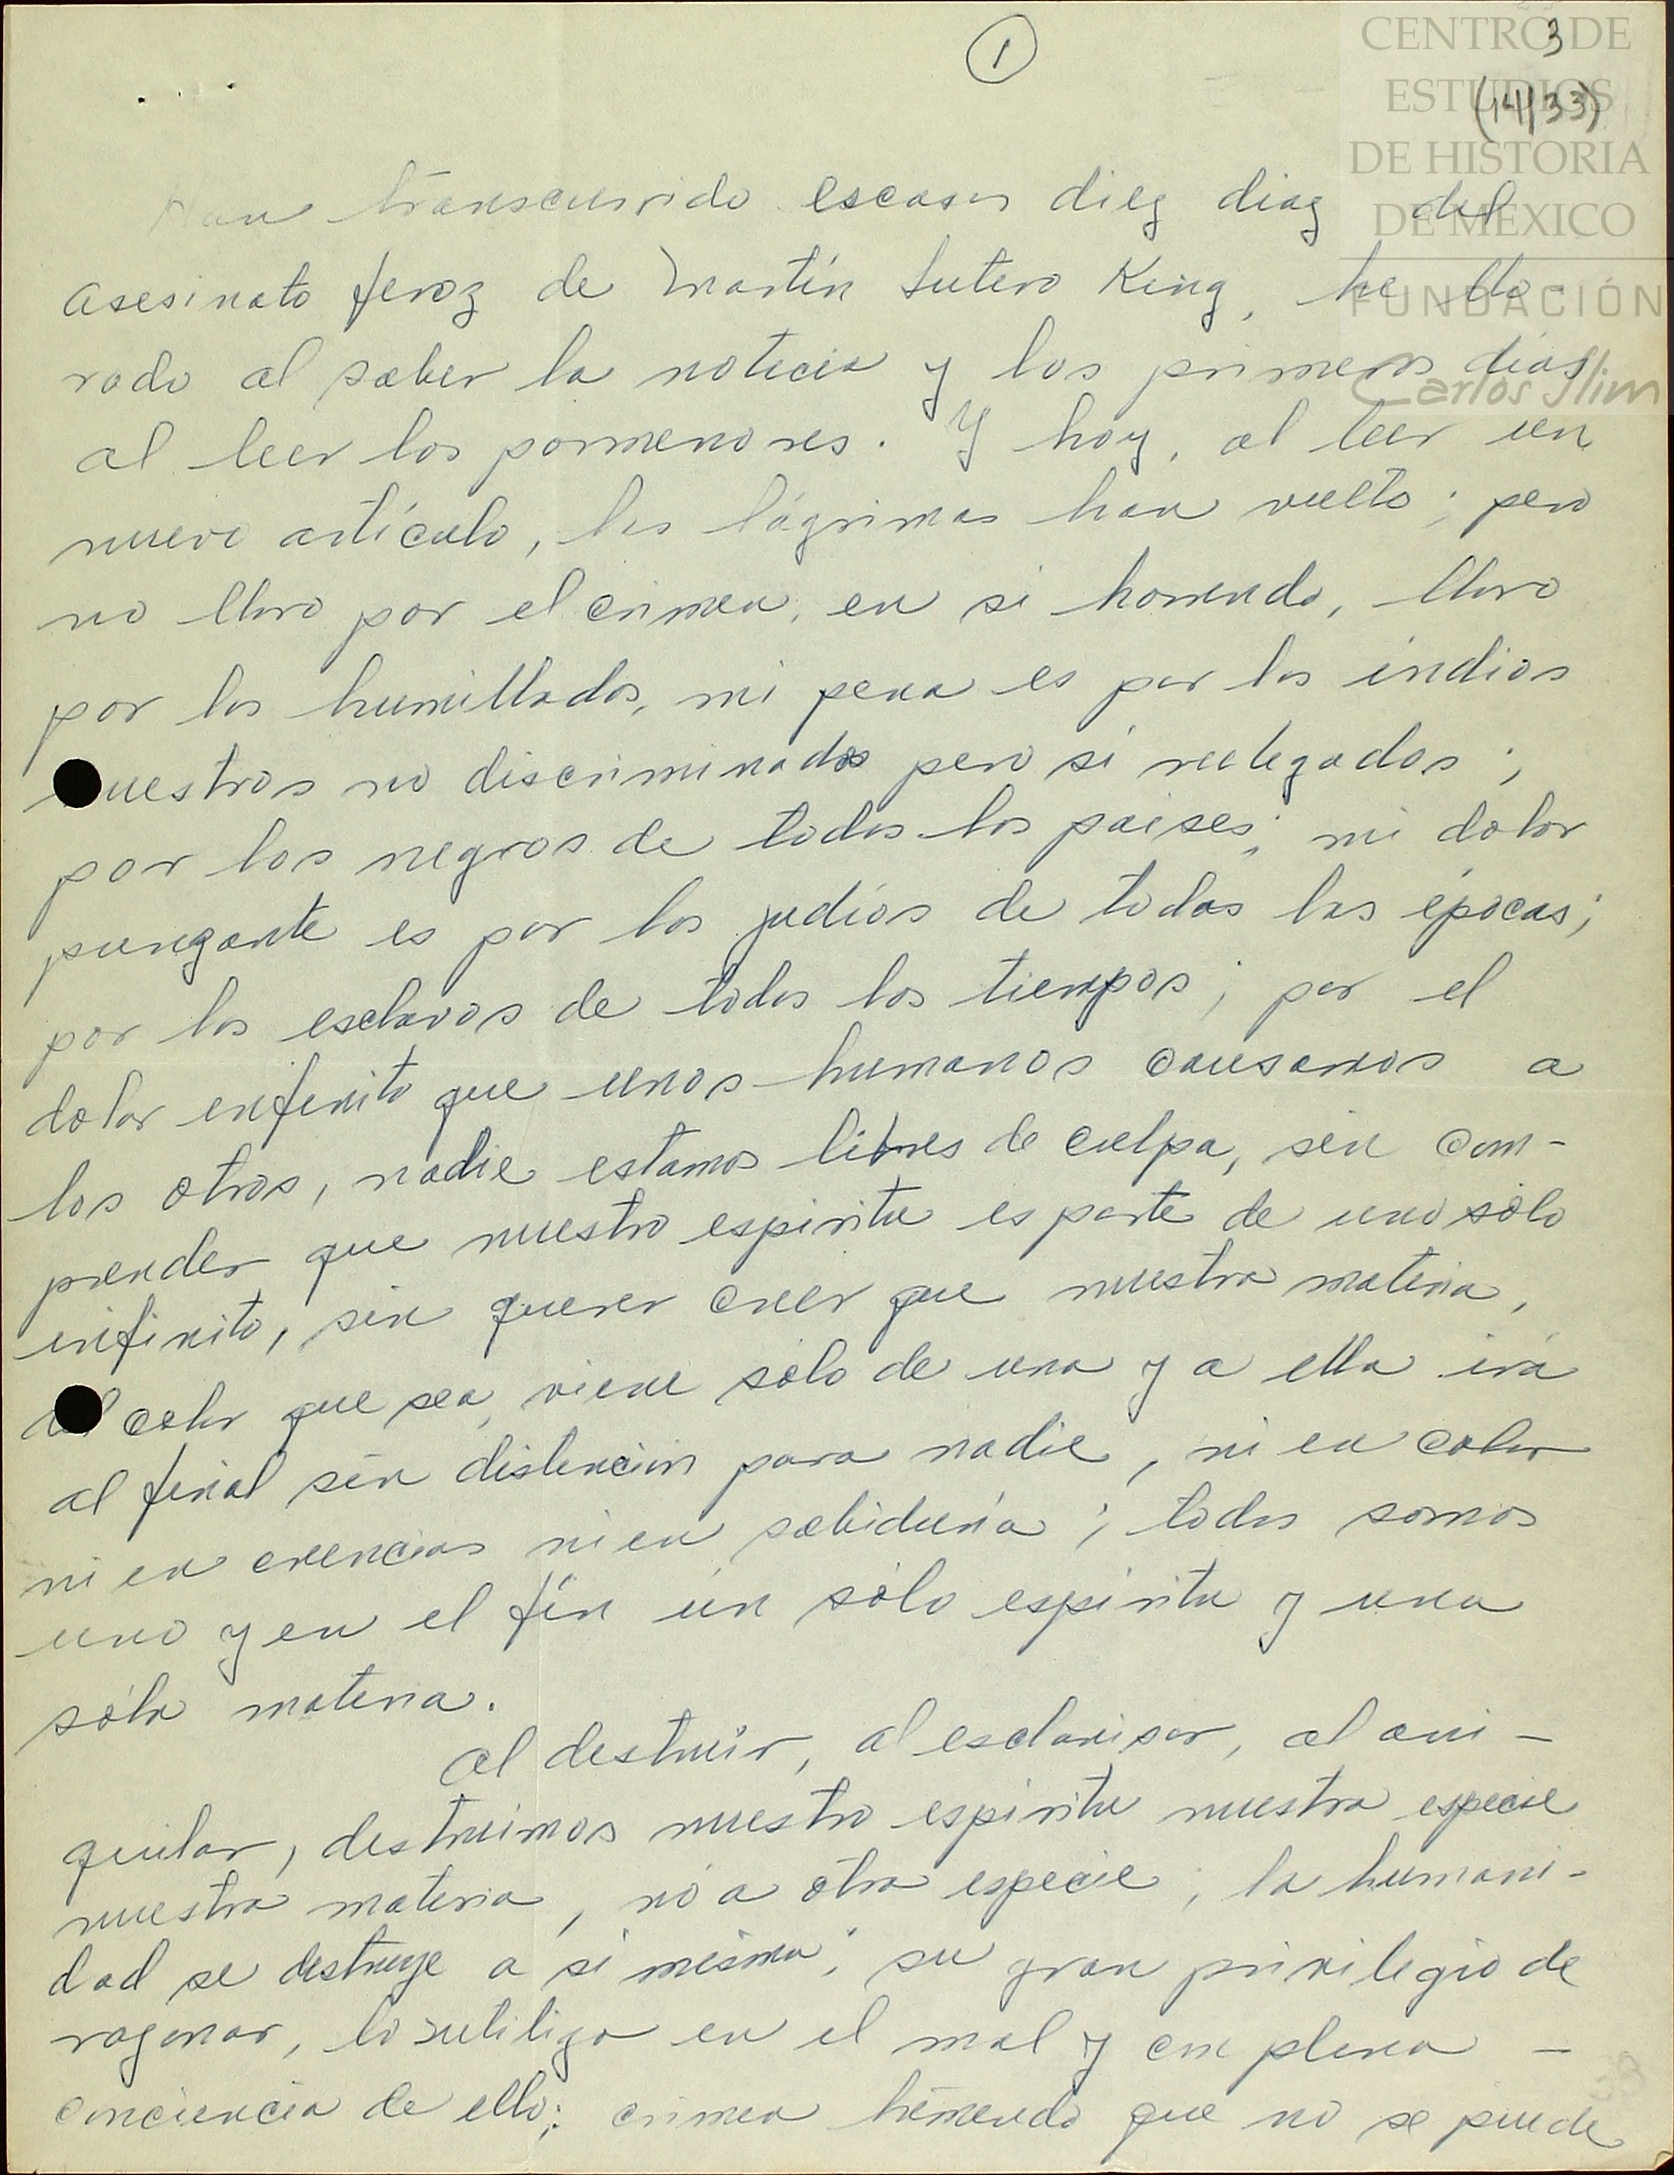 1
3
(14/33)
CENTRO DE
ESTUDIOS
DE HISTORIA
DE MÉXICO
FUNDACIÓN
Carlos Slim
Han transcurrido escasos diez diaz del
asesinato feroz de Martín Lutero King, he llo-
rado al saber la noticia y los primeros días
al leer los pormenores. Y hoy, al leer un
nuevo artículo, las lágrimas han vuelto; pero
no lloro por el crimen, en si horrendo, lloro
por los humillados, mi pena es por los indios
nuestros no discriminados pero si relegados;
por los negros de todos los paises; mi dolor
pungante es por los judíos de todas las épocas;
por los esclavos de todos los tiempos; por el
dolor infinito que unos humanos causamos a
los otros, nadie estamos libres de culpa, sin com-
prender que nuestro espiritu es parte de uno sólo
infinito, sin querer creer que nuestra materia,
del color que sea, viene sólo de una y a ella irá
al final sin distinción para nadie, ni en color
ni en creencias ni en sabiduría; todos somos
uno y en el fín ún sólo espiritu y una
sóla materia.
Al destruír, al esclavisar, al ani-
quilar, destruímos nuestro espiritu nuestra especie
nuestra materia, nó a otra especie; la humani-
dad se destruye a si misma; su gran privilegio de
razonar, lo utiliza en el mal y con plena -
conciencia de ello; crimen trémendo que no se puede